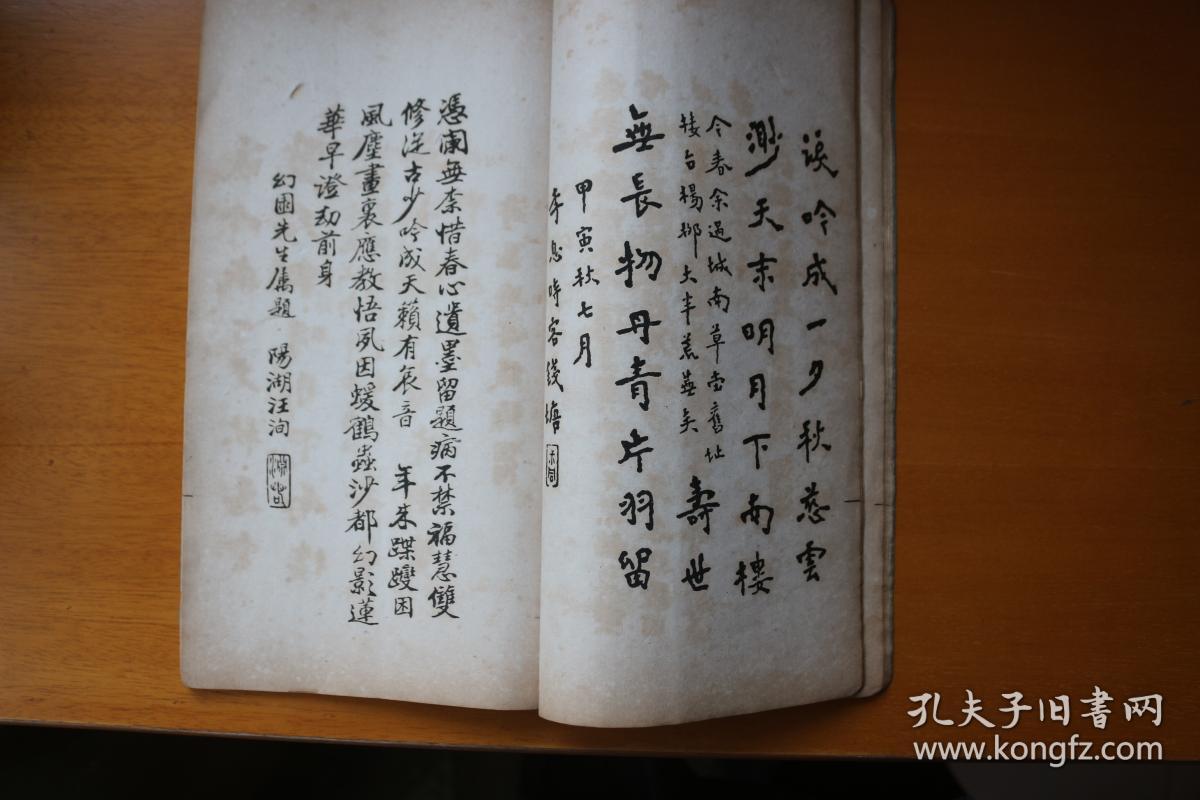 淚吟成一夕秋慈雲
渺天末明月下南樓
今春余過城南草堂舊址
樓台楊柳大半荒蕪矣
壽世
無長物丹青片羽留
甲寅秋七月
李息時客錢塘
憑闌無奈惜春心遺墨留題病不禁福慧雙
修從古少吟成天籟有哀音 年來蹀躞困
風塵畫裏應教悟夙因猨鶴蟲沙都幻影蓮
華早證劫前身
幻園先生屬題 陽湖汪洵
孔夫子旧書网
www.kongfz.com